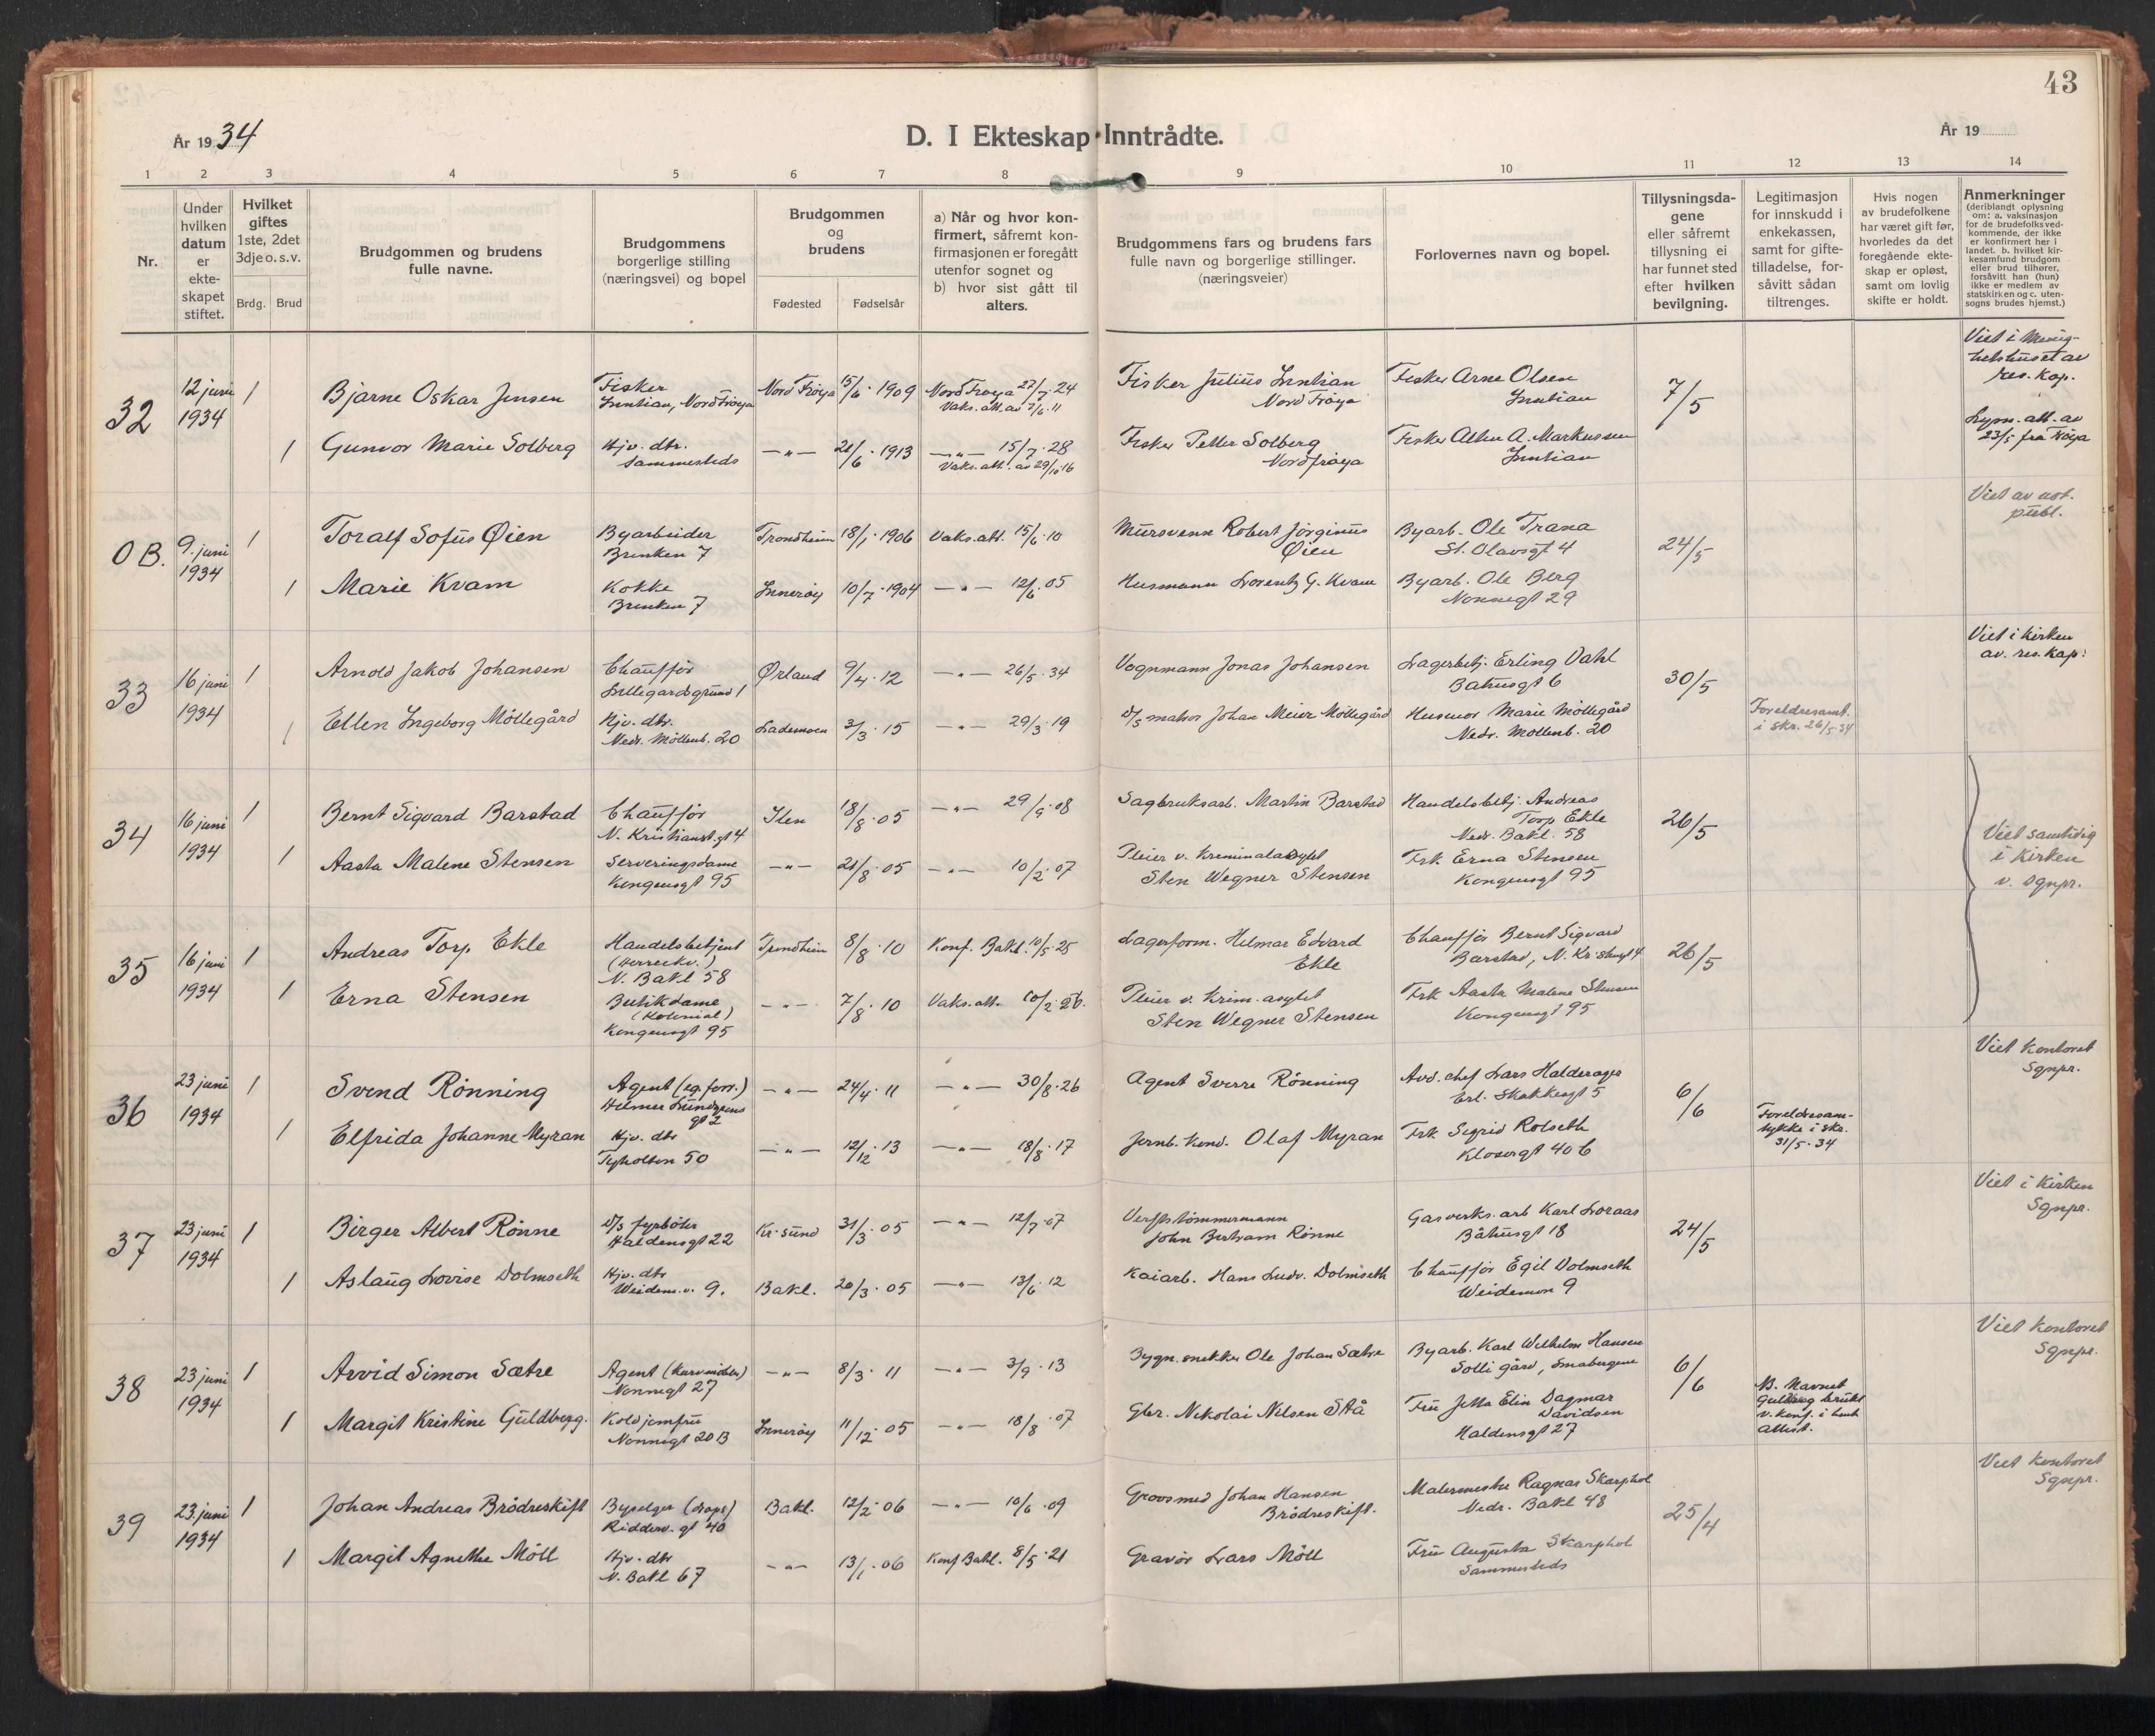 43
År 1934
D. I Ekteskap Inntrådte.
År 19
1 2 3 4 5 6 7 8 9 10 11 12 13 14
Nr.
Under hvilken datum er ekteskapet stiftet.
Hvilket giftes 1ste, 2det 3dje o. s. v.
Brdg. Brud
Brudgommen og brudens fulle navne.
Brudgommens borgerlige stilling (næringsvei) og bopel
Brudgommen og brudens
Fødested Fødselsår
a) Når og hvor konfirmert, såfremt konfirmasjonen er foregått utenfor sognet og b) hvor sist gått til alters.
Brudgommens fars og brudens fars fulle navn og borgerlige stillinger. (næringsveier)
Forlovernes navn og bopel.
Tillysningsdagene eller såfremt tillysning ei har funnet sted efter hvilken bevilgning.
Legitimasjon for innskudd i enkekassen, samt for giftetilladelse, forsåvitt sådan tiltrenges.
Hvis nogen av brudefolkene har været gift før, hvorledes da det foregående ekteskap er opløst, samt om lovlig skifte er holdt.
Anmerkninger (deriblandt oplysning om: a. vaksinasjon for de brudefolks vedkommende, der ikke er konfirmert her i landet. b. hvilket kirkesamfund brudgom eller brud tilhører, forsåvitt han (hun) ikke er medlem av statskirken og c. utensogns brudes hjemst.)
32
12 juni 1934
1
Bjarne Oskar Jensen
Fisker
Inntian, Nord Frøya
Nord Frøya
15/6 · 1909
Nord Frøya 27/7 24
Vaks. att. av 7/6 11
Fisker Julius Inntian
Nord Frøya
Fisker Arne Olsen
Inntian
7/5
Viet i Menighetshuset av res. kap.
1
Gunvor Marie Solberg
Hjv. dtr.
Sammesteds
—"—
21/6 · 1913
—"— 15/7 · 28
Vaks. att. av 29/10 16
Fisker Petter Solberg
Nordfrøya
Fisker A. Markussen
Inntian
Lysn. att. av 23/5 fra Frøya
O B.
9. juni 1934
1
Toralf Sofus Øien
Byarbeider
Brinken 7
Trondheim
18/1 · 1906
Vaks. att. 15/6 · 10
Mursvenn Robert Jørginus
Øien
Byarb. Ole Trana
St. Olavsgt 4
24/5
Viet av not. publ.
1
Marie Kvam
Kokke
Brinken 7
Innerøy
10/7 · 1904
—"— 12/6 · 05
Husmann Lorentz G. Kvam
Byarb. Ole Berg
Nonnegt 29
33
16 juni 1934
1
Arnold Jakob Johansen
Chauffør
Lillegardsgrund 1
Ørland
9/4 · 12
—"— 26/5 · 34
Vognmann Jonas Johansen
Lagerbetj. Erling Dahl
Bathusgt 6
30/5
Viet i kirken
av. res. kap.
1
Ellen Ingeborg Möllegård
Hjv. dtr.
Nedr. Möllenb. 20
Lademoen
3/3 · 15
—"— 29/3 · 19
D/S matros Johan Meier Möllegård
Husmor Marie Möllegård
Nedr. Möllenb. 20
Foreldresamt.
i skr. 26/5 · 34
34
16 juni 1934
1
Bernt Sigvard Barstad
Chauffør
N. Kristianst. gt 4
Ilen
18/8 · 05
—"— 29/9 · 08
Sagbruksarb. Martin Barstad
Handelsbetj. Andreas
Torp Ekle
Nedr. Bakl. 58
26/5
Viet samtidig
i kirken
v. sgnpr.
1
Aasta Malene Stensen
Serveringsdame
Kongensgt 95
—"—
21/8 · 05
—"— 10/2 · 07
Pleier v. Kriminalasylet
Sten Wegner Stensen
Frk Erna Stensen
Kongensgt 95
35
16 juni 1934
1
Andreas Torp Ekle
Handelsbetjent
(Herreekv.)
N. Bakl 58
Trondheim
8/8 · 10
Konf. Bakl. 10/5 · 25
Lagerform. Hilmar Edvard
Ekle
Chauffør Bernt Sigvard
Barstad, N. Kr. stgt 4
26/5
1
Erna Stensen
Butikdame
(Kolonial)
Kongensgt 95
—"—
7/8 · 10
Vaks. att.
Pleier v. Krim. asylet
Sten Wegner Stensen
Frk Aasta Malene Stensen
Kongensgt 95
36
23 juni 1934
1
Svend Rönning
Agent (eg. forr.)
Hilmer Lundgrens gt 2
—"—
24/4 · 11
—"— 30/8 · 26
Agent Sverre Rönning
Avd. chef Lars Halderager
Erl. Skakkesgt 5
6/6
Viet kontoret
Sgnpr.
1
Elfrida Johanne Myran
Hjv. dtr
Tyholten 50
—"—
12/12 · 13
—"— 18/8 · 17
Jernb. kond. Olaf Myran
Frk. Sigrid Rolseth
Klostergt 40 b
Foreldresamtykke i skr.
31/5 · 34
37
23 juni 1934
1
Birger Albert Rönne
D/S fyrbøter
Haldensgt 22
Kr. sund
31/3 · 05
—"— 12/7 · 07
Verftstömmermann
John Bertram Rönne
Gasverks. arb Karl Loraas
Båthusgt 18
24/5
Viet i kirken
Sgnpr.
1
Aslaug Lovise Dolmseth
Hjv. dtr
Weidem. v. 9.
Bakl.
20/3 · 05
—"— 13/6 · 12
Kaiarb. Hans Ludv. Dolmseth
Chauffør Egil Dolmseth
Weidemsv 9
38
23 juni 1934
1
Arvid Simon Sætre
Agent
Nonnegt 27
—"—
8/3 · 11
—"— 3/9 · 13
Bygn. snekker Ole Johan Sætre
Byarb. Karl Wilhelm Hansen
Solli gård, Smabergene
6/6
Viet kontoret
Sgnpr.
1
Margit Kristine Guldberg.
Koldjomfru
Nonnegt 20 B
Innerøy
11/12 · 05
—"— 18/8 · 07
Gbr. Nikolai Nilsen Stå
Fru Jetta Elin Dagmar
Davidsen
Haldensgt 27
N. Navnet
Guldberg brukt
v. konf. i
attest.
39
23. juni 1934
1
Johan Andreas Brödreskift
Byselger (drops)
Ridderv. gt 40
Bakl.
12/2 · 06
—"— 10/6 · 09
Grovsmed Johan Hansen
Brödreskift.
Malermester Ragnar Skarphol
Nedr. Bakl 48
25/4
Viet kontoret
Sgnpr.
1
Margit Agnethe Möll
Hjv. dtr
N. Bakl 67
—"—
13/1 · 06
Konf Bakl. 8/5 · 21
Gravør Lars Möll
Fru Augusta Skarphol
Sammesteds